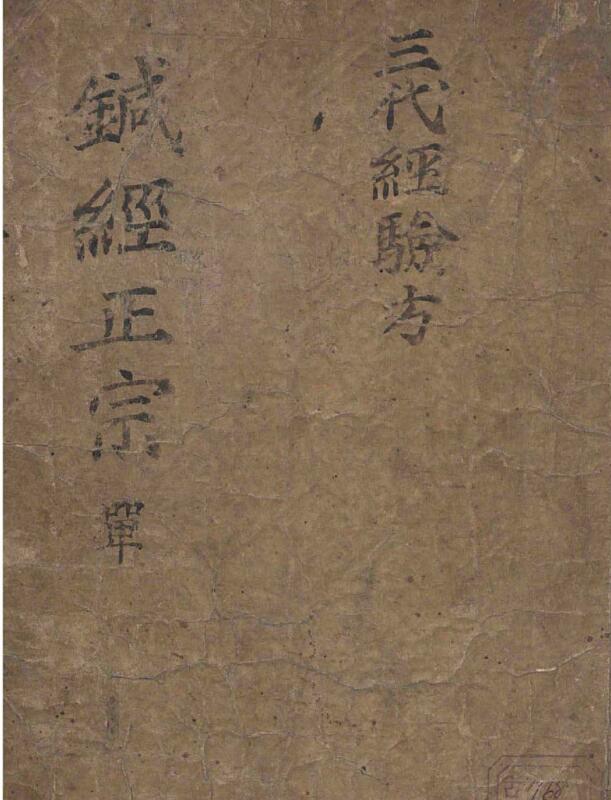 三代經驗方
鍼經正宗 單
古 1768